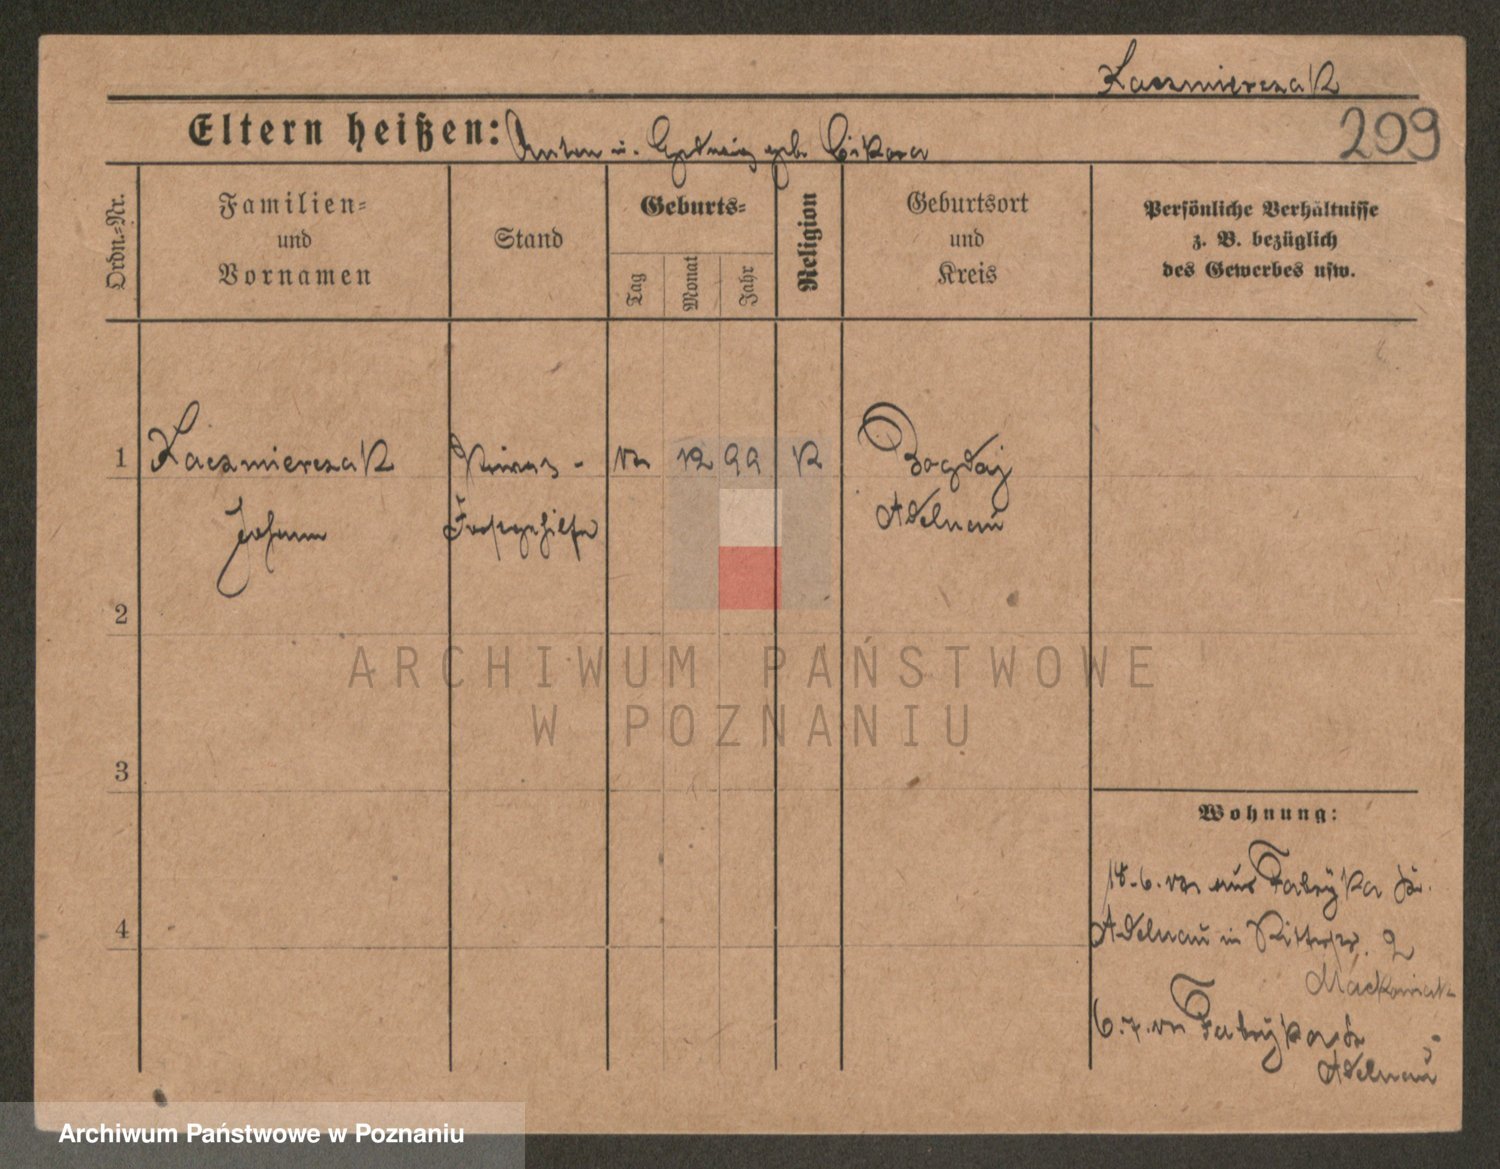 Kaczmierczak
209
Eltern heißen: Anton u. Hedwig geb. Cikora
Ordn.-Nr.
Familien-
und
Vornamen
Stand
Geburts-
Tag
Monat
Jahr
Religion
Geburtsort
und
Kreis
Persönliche Verhältnisse
z. B. bezüglich
des Gewerbes usw.
1
Kaczmierczak
Johann
12 99 K
Bogdaj
Adelnau
2
3
4
Wohnung:
18.6. aus Fabryka Kr.
Adelnau in Ritterstr. 2
Mackowiak
6.7. Fabryka Kr.
Adelnau
ARCHIWUM PAŃSTWOWE
W POZNANIU
Archiwum Państwowe w Poznaniu